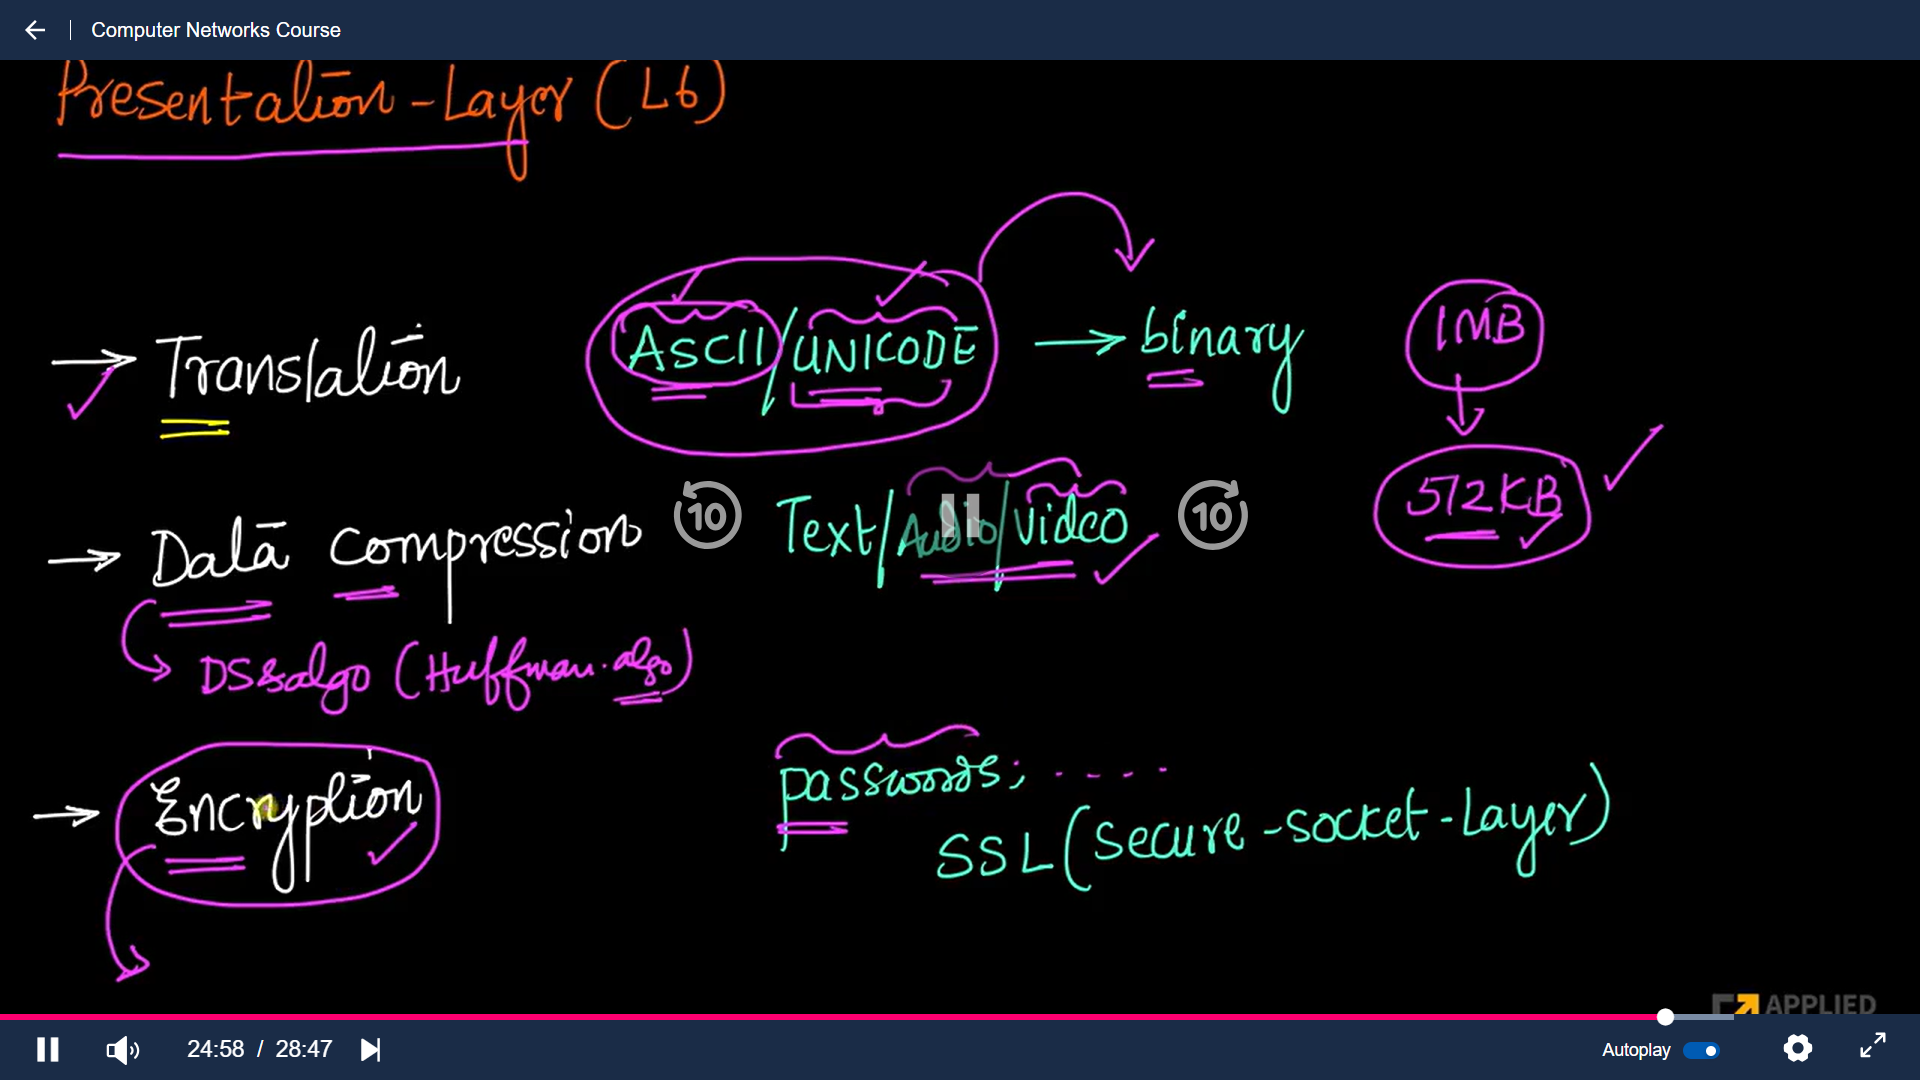 Computer Networks Course
Presentation-Layer (L6)
→ Translation ASCII/UNICODE → binary 1MB
572KB
→ Data compression Text/Audio/Video
DS&algo (Huffman.algo)
→ Encryption passwords; ....
SSL (secure-socket-Layer)
APPLIED
10
10
24:58 / 28:47
Autoplay